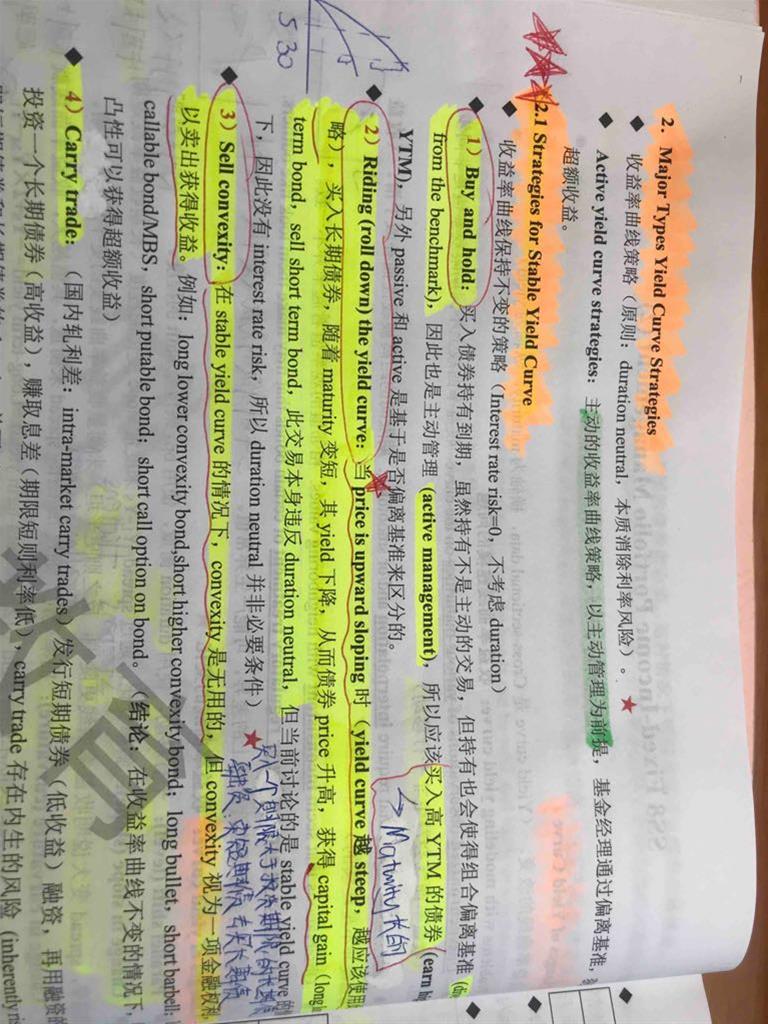 2. Major Types Yield Curve Strategies
◆ 收益率曲线策略（原则：duration neutral，本质消除利率风险）。★
◆ Active yield curve strategies：主动的收益率曲线策略，以主动管理为前提，基金经理通过偏离基准，
超额收益。
2.1 Strategies for Stable Yield Curve
◆ 收益率曲线保持不变的策略（Interest rate risk=0，不考虑 duration）
◆ 1）Buy and hold：买入债券持有到期，虽然持有不是主动的交易，但持有也会使得组合偏离基准
from the benchmark)，因此也是主动管理（active management），所以应该买入高 YTM 的债券（earn
YTM)，另外 passive 和 active 是基于是否偏离基准来区分的。
→ Maturity 长的
◆ 2）Riding (roll down) the yield curve：当 price is upward sloping 时（yield curve 越 steep，越应该使用
略），买入长期债券，随着 maturity 变短，其 yield 下降，从而债券 price 升高，获得 capital gain（long
term bond，sell short term bond，此交易本身违反 duration neutral，但当前讨论的是 stable yield curve 的
下，因此没有 interest rate risk，所以 duration neutral 并非必要条件）★
530
◆ 3）Sell convexity：在 stable yield curve 的情况下，convexity 是无用的，但 convexity 视为一项金融权利，
以卖出获得收益。例如：long lower convexity bond,short higher convexity bond；long bullet，short barbell；
callable bond/MBS，short putable bond；short call option on bond。（结论：在收益率曲线不变的情况下，
凸性可以获得超额收益）
◆ 4）Carry trade：（国内轧利差：intra-market carry trades）发行短期债券（低收益）融资，再用融资的
投资一个长期债券（高收益），赚取息差（期限短则利率低），carry trade 存在内生的风险（inherently
教育